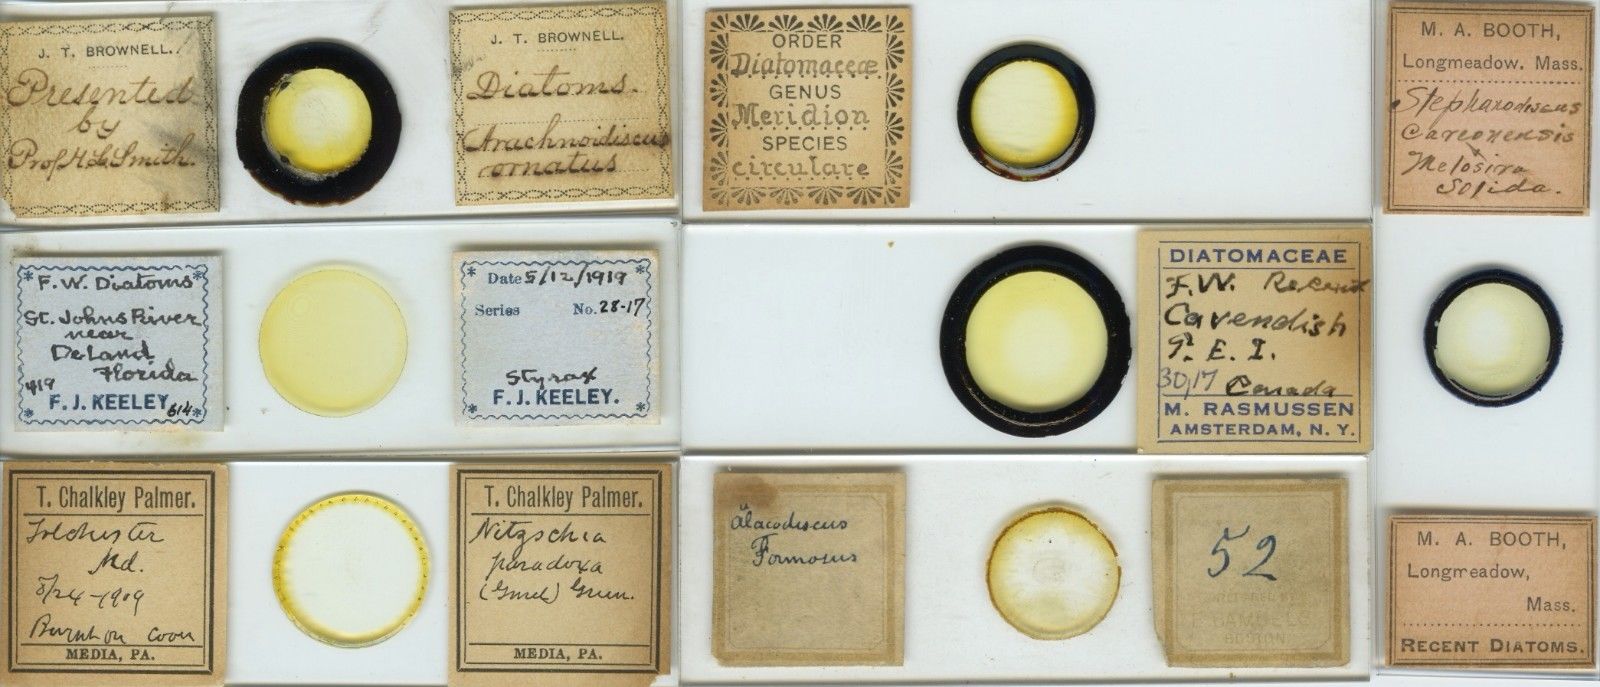 J. T. BROWNELL.
Presented
by
Prof. H. L. Smith.
J. T. BROWNELL.
Diatoms.
Arachnoidiscus
ornatus
ORDER
Diatomaceæ
GENUS
Meridion
SPECIES
circulare
M. A. BOOTH,
Longmeadow. Mass.
Stephanodiscus
Careonensis
Melosira
Solida.
F. W. Diatoms
St. Johns River
near
DeLand
Florida
419
F. J. KEELEY. 614
Date 5/12/1919
Series No. 28-17
Styrax
F. J. KEELEY.
DIATOMACEAE
F. W. Recent
Cavendish
P. E. I.
30,17 Canada
M. RASMUSSEN
AMSTERDAM, N. Y.
T. Chalkley Palmer.
Tolchester
Md.
8/24-1909
MEDIA, PA.
T. Chalkley Palmer.
Nitzschia
paradoxa
(Gmel) Grun.
MEDIA, PA.
Formosus
52
BOSTON
M. A. BOOTH,
Longmeadow,
Mass.
RECENT DIATOMS.